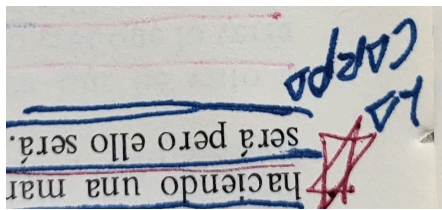 haciendo una mar
será pero ello será.
LA
CARPA